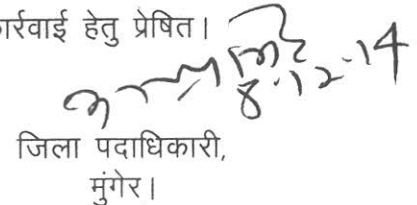 कार्रवाई हेतु प्रेषित।
8.12.14
जिला पदाधिकारी,
मुंगेर।